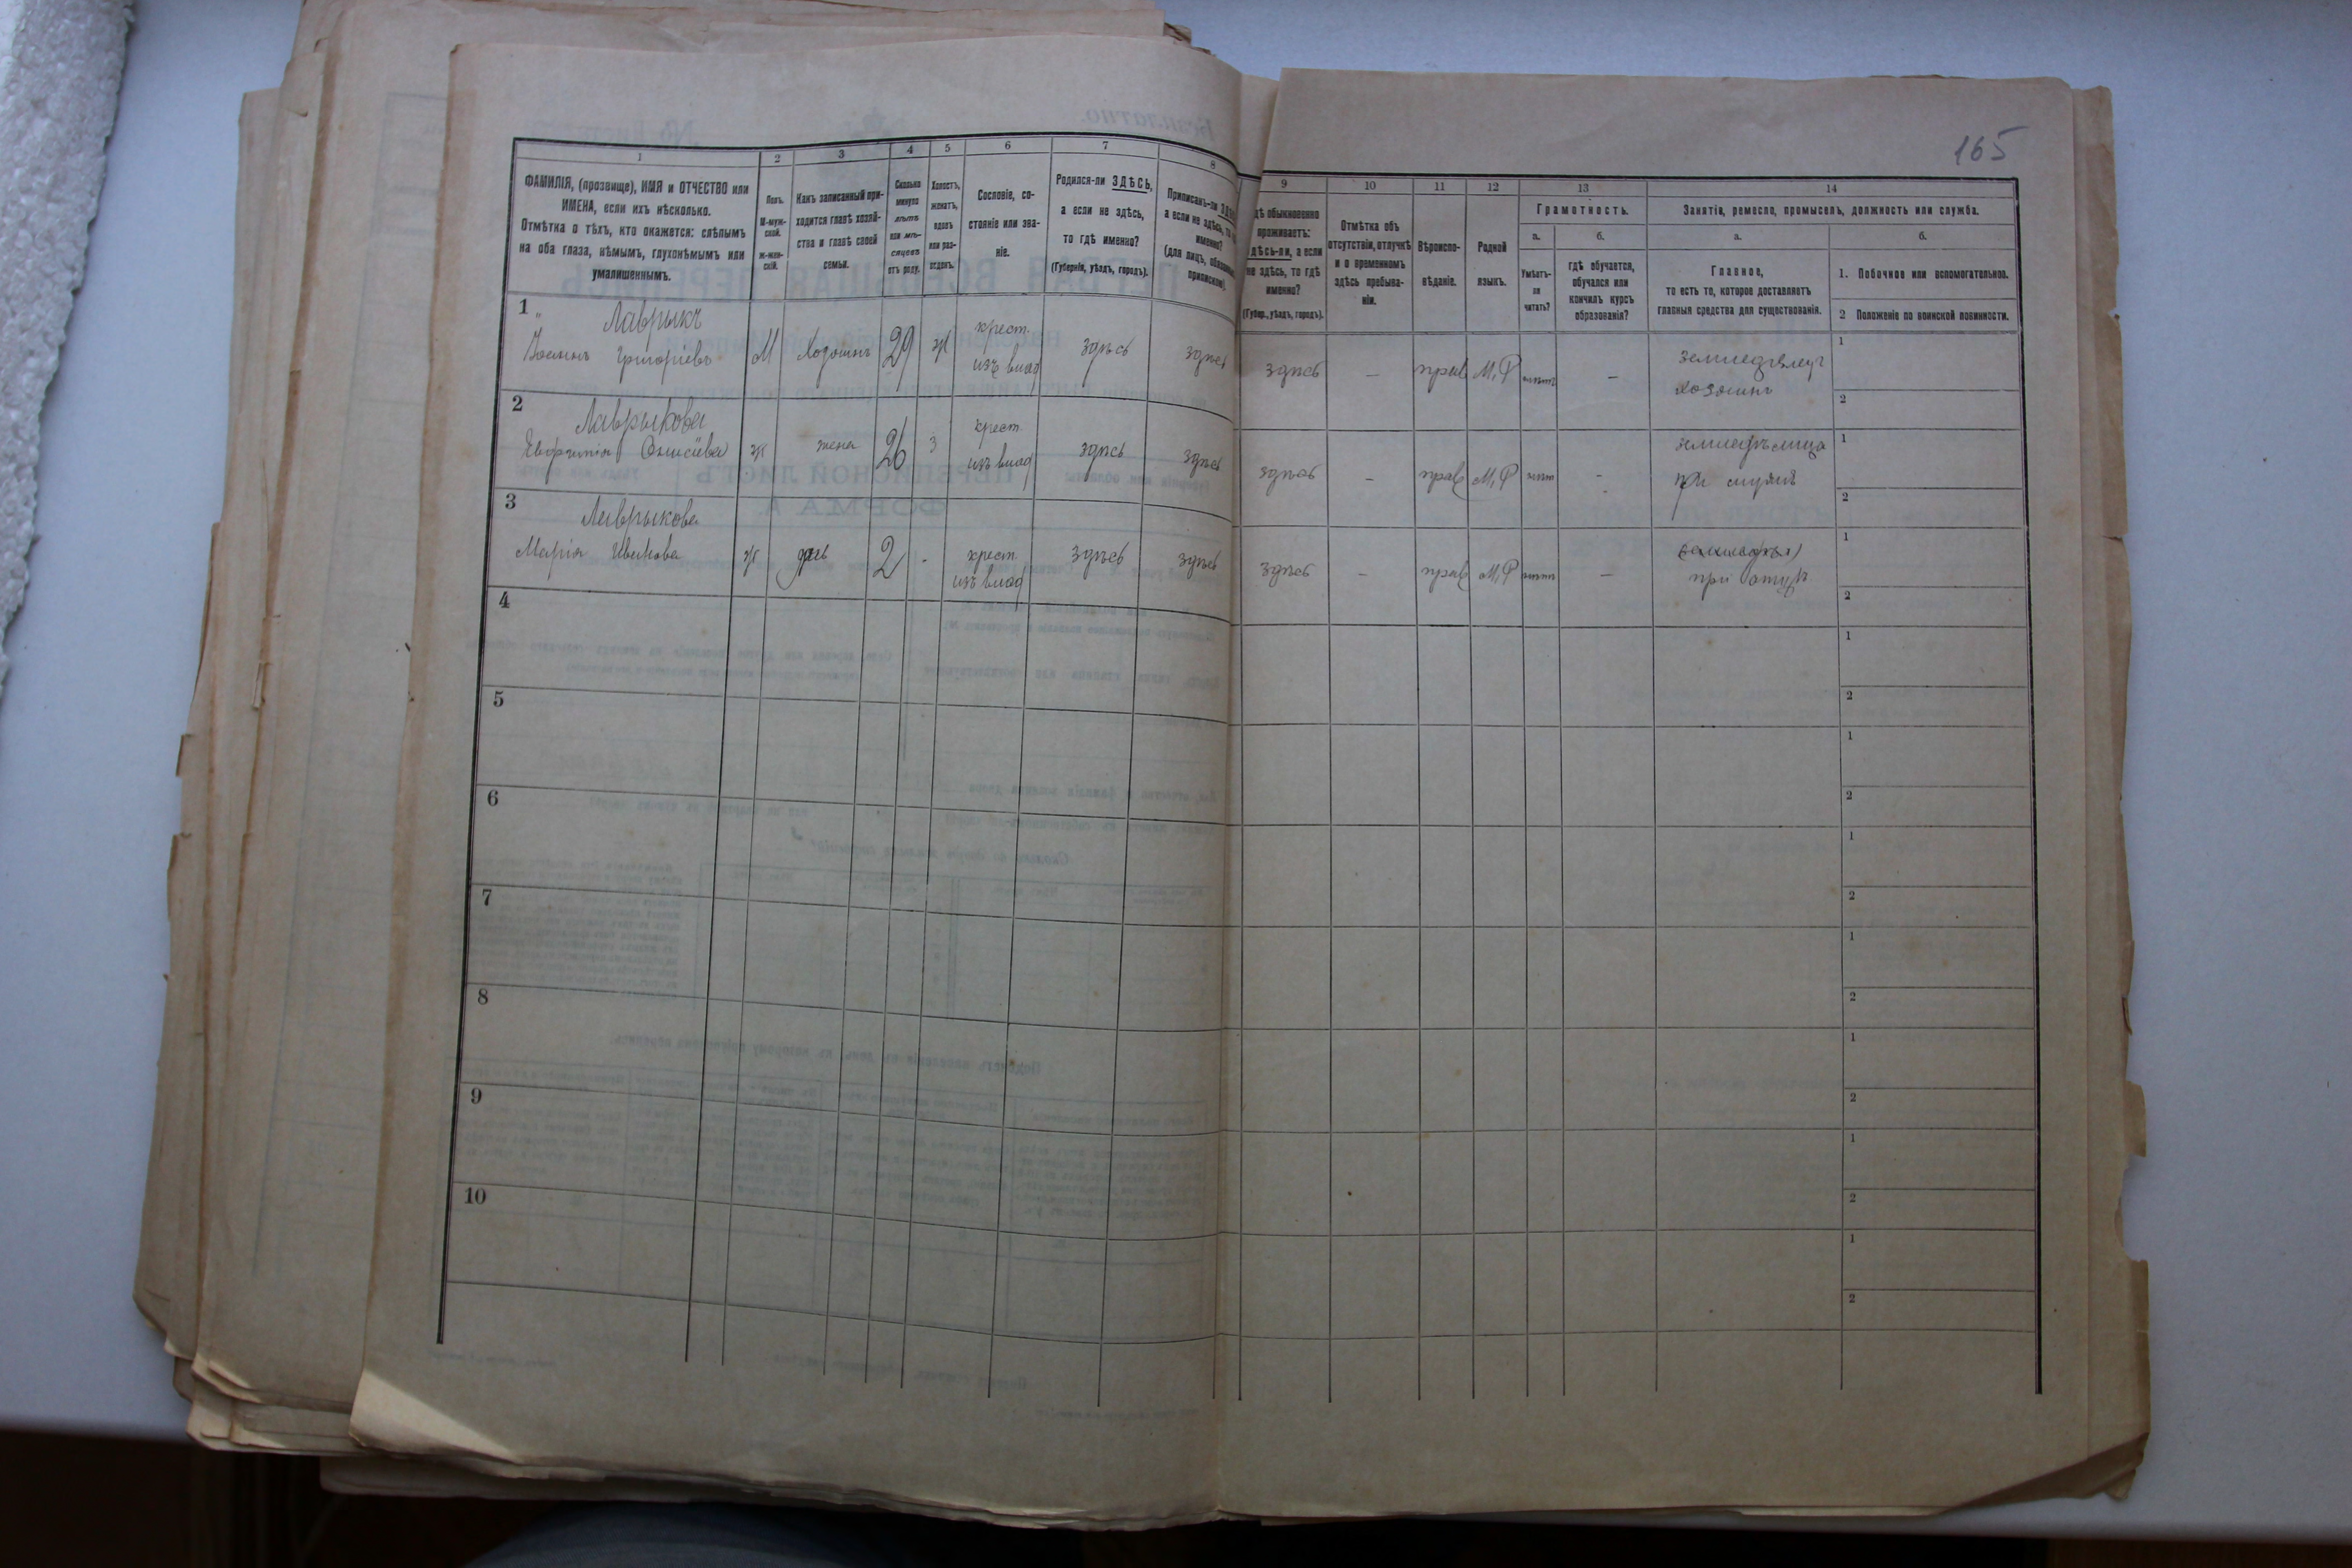 165
1
2
3
4
5
6
7
8
ФАМИЛІЯ, (прозвище), ИМЯ и ОТЧЕСТВО или
ИМЕНА, если ихъ нѣсколько.
Отмѣтка о тѣхъ, кто окажется: слѣпымъ
на оба глаза, нѣмымъ, глухонѣмымъ или
умалишеннымъ.
Полъ.
М-муж-
ской.
Ж-жен-
скій.
Какъ записанный при-
ходится главѣ хозяй-
ства и главѣ своей
семьи.
Сколько
минуло
лѣтъ
или мѣ-
сяцевъ
отъ роду.
Холостъ,
женатъ,
вдовъ
или раз-
веденъ.
Сословіе, со-
стояніе или зва-
ніе.
Родился-ли ЗДѢСЬ,
а если не здѣсь,
то гдѣ именно?
(Губернія, уѣздъ, городъ).
Приписанъ-ли
а если не здѣсь,
именно?
(для лицъ,
9
10
11
12
13
14
обыкновенно
проживаетъ:
а если
не здѣсь, то гдѣ
именно?
(Губер., уѣздъ, городъ).
Отмѣтка объ
отсутствіи, отлучкѣ
и о временномъ
здѣсь пребыва-
ніи.
Вѣроиспо-
вѣданіе.
Родной
языкъ.
Грамотность.
а.
Умѣетъ-
ли
читать?
б.
гдѣ обучается,
обучался или
кончилъ курсъ
образованія?
Занятіе, ремесло, промыселъ, должность или служба.
а.
Главное,
то есть то, которое доставляетъ
главныя средства для существованія.
б.
1. Побочное или вспомогательное.
2 Положеніе по воинской повинности.
1 Лаврыкъ
Иоаннъ Григоріевъ М Хозяинъ 29 ж крест. изъ влад здѣсь здѣсь
здѣсь – прав М,Р – земледѣлецъ
хозяинъ
1
2
2 Лаврыкова
ж жена 26 з крест. изъ влад здѣсь здѣсь
здѣсь – прав М,Р -
при мужѣ
1
2
3 Лаврыкова
Марія Иванова ж дчь 2 - крест. изъ влад здѣсь здѣсь
здѣсь – прав М,Р –
при отцѣ
1
2
4
1
2
5
1
2
6
1
2
7
1
2
8
1
2
9
1
2
10
1
2